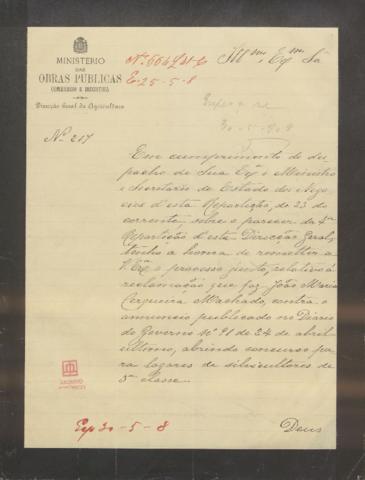 MINISTERIO
DAS
OBRAS PUBLICAS
COMMERCIO E INDUSTRIA
Direcção Geral da Agricultura
Illmo. Exmo. Sr
E-25-5-8
30-5-908
No. 217
Em cumprimento de des-
pacho de Sua Exa. o Ministro
e Secretario de Estado dos Nego-
cios d'esta Repartição, de 23 do
corrente, sobre o parecer da 4a.
Repartição d'esta Direcção Geral,
tenho a honra de remetter a
V. Exa. o processo junto, relativo á
reclamação que faz João Maria
Cerqueira Machado, contra o
annuncio publicado no Diario
do Governo No. 91 de 24 de abril
ultimo, abrindo concurso pa-
ra logares de silvicultores de
3a classe.
Deus
Exp 30-5-8